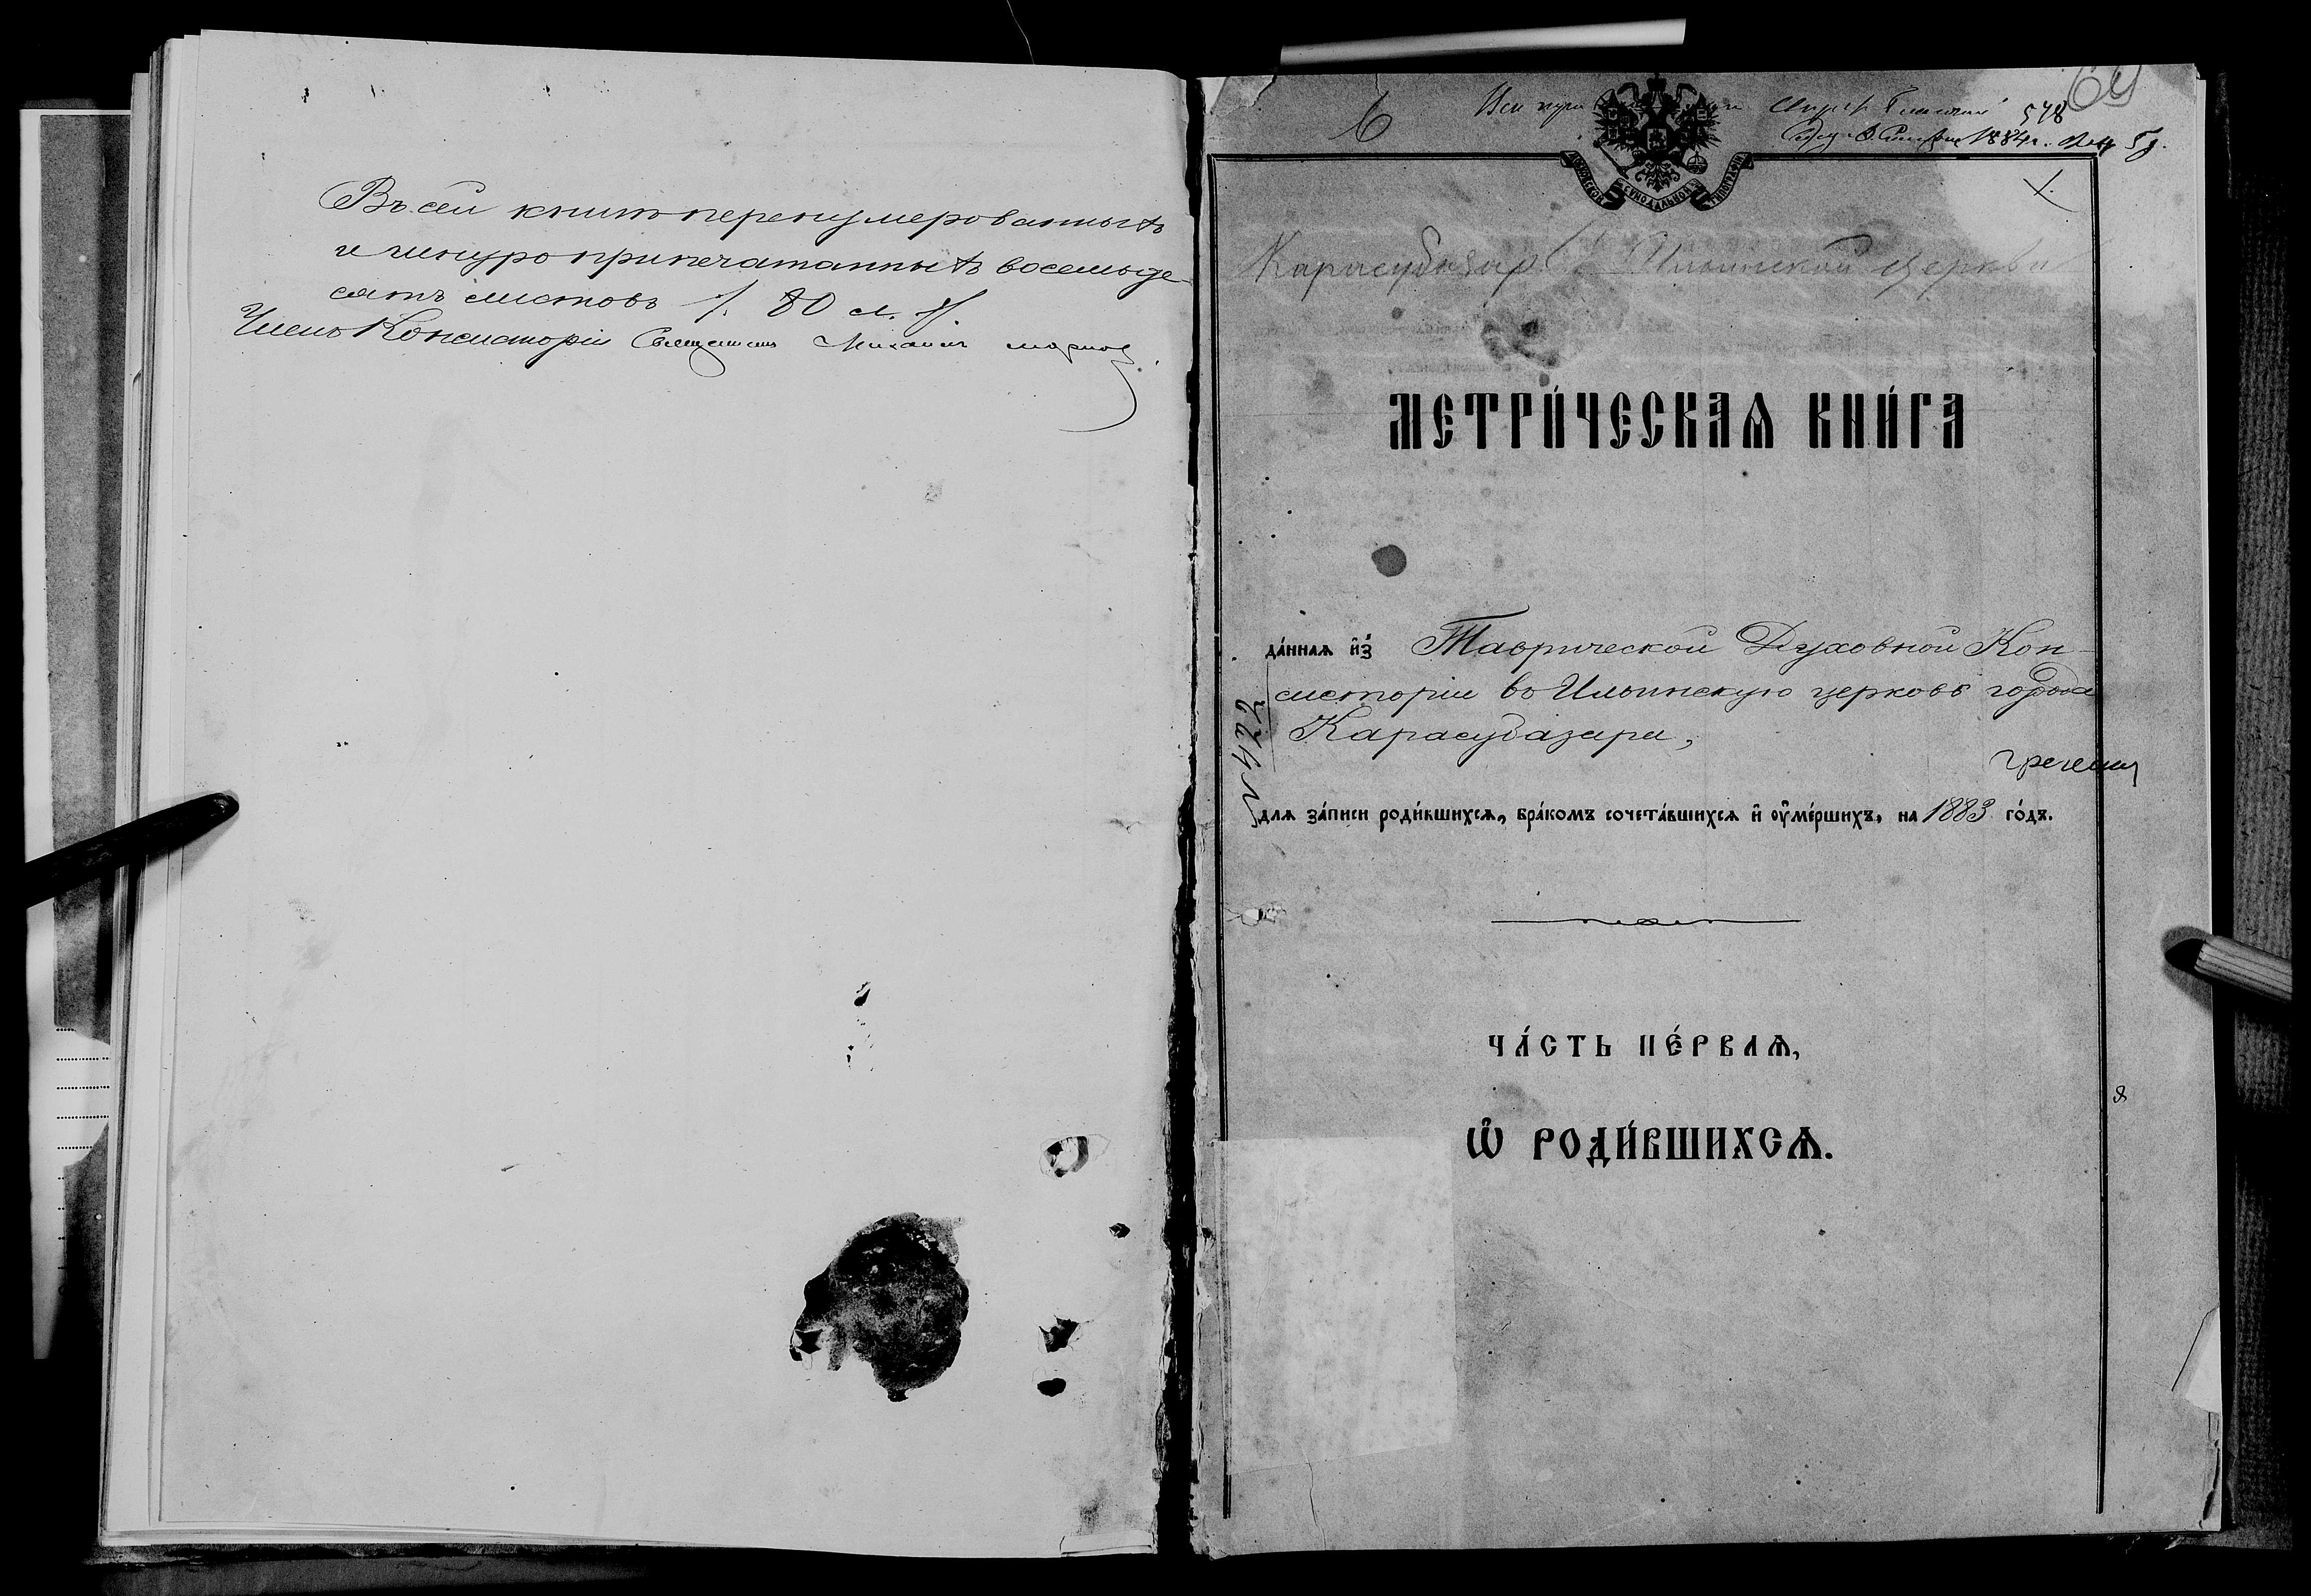 Въ сей книгѣ перенумерованныхъ
и шнуро припечатанныхъ восемьде-
сятъ листовъ /. 80 л. /.
Членъ Консисторіи Священникъ Михаилъ
6
578
1884 г.
МОСКОВСКОЙ СѴНОДАЛЬНОЙ ТИПОГРАФІИ
Карасубазар Ильинской церкви
МЕТРИ́ЧЕСКАѦ КНИ́ГА
да́ннаѧ и҆з̾ Таврической Духовной Кон-
систоріи въ Ильинскую церковь города
Карасубазара,
для за́писи роди́вшихсѧ, бра́комъ сочета́вшихсѧ и҆ ᲂу҆ме́ршихъ, на 1883 го́дъ.
ЧА́СТЬ ПЕ́РВАѦ,
Ѡ҆ РОДИ́ВШИХСѦ.